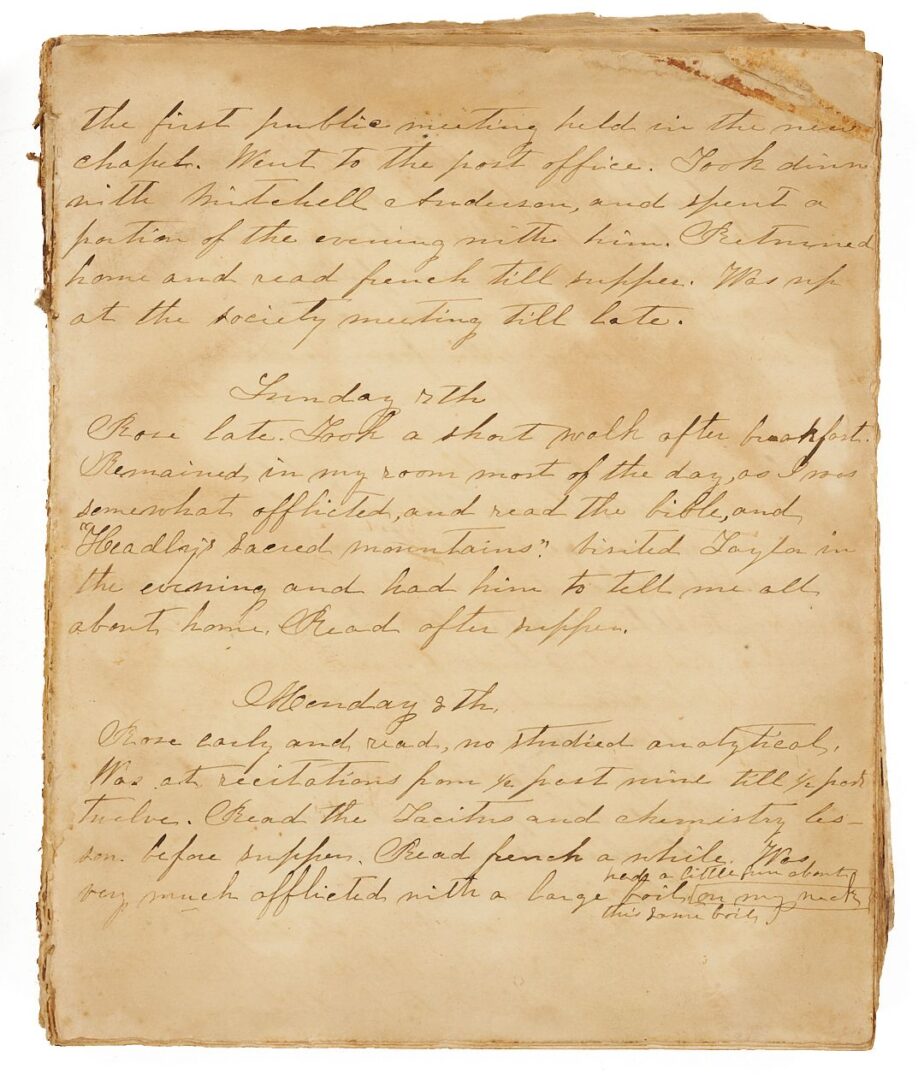 the first public meeting held in the new
chapel. Went to the post office. Took dinn
with Mitchell Anderson, and spent a
portion of the evening with him. Returned
home and read french till supper. Was up
at the society meeting till late.
Sunday 7th
Rose late. Took a short walk after breakfast.
Remained in my room most of the day, as I was
somewhat afflicted, and read the bible, and
"Headley's sacred mountains". Visited Taylor in
the evening and had him to tell me all
about home. Read after supper.
Monday 8th
Rose early and read, no studied analytical.
Was at recitations from 1/2 past nine till 1/2 past
twelve. Read the Tacitus and chemistry les-
son before supper. Read french a while. Was
had a little fun about
very much afflicted with a large boil on my neck
this same boil.